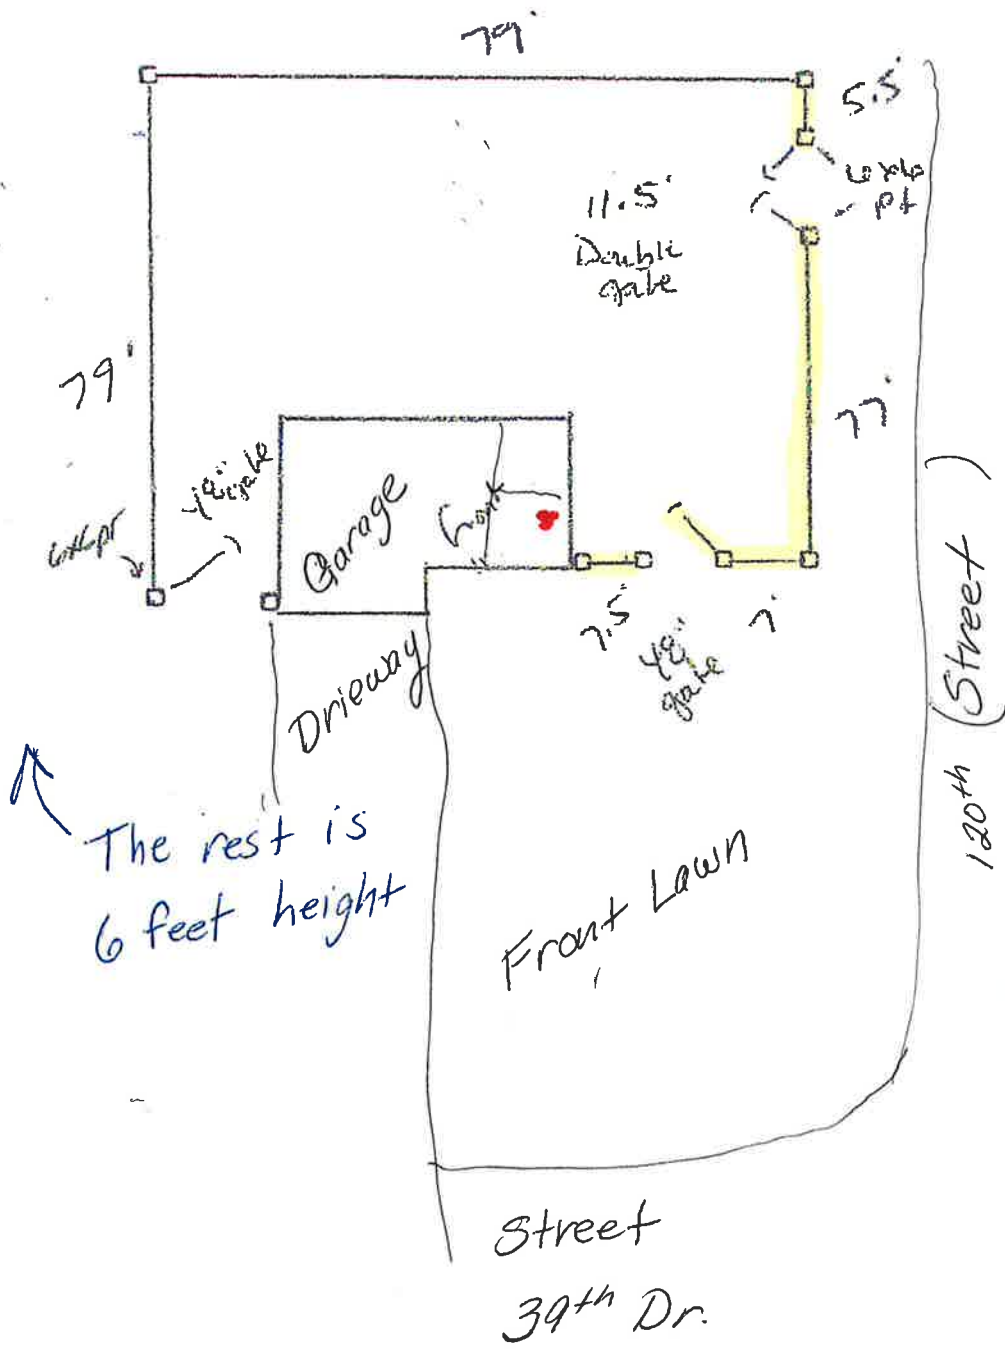 79'
5.5'
6x6
pt
11.5'
Double
gate
79'
77'
48" gate
6x6pt
Garage
7.5'
48"
gate
7'
Drieway
(Street)
120th
The rest is
6 feet height
Front Lawn
Street
39th Dr.